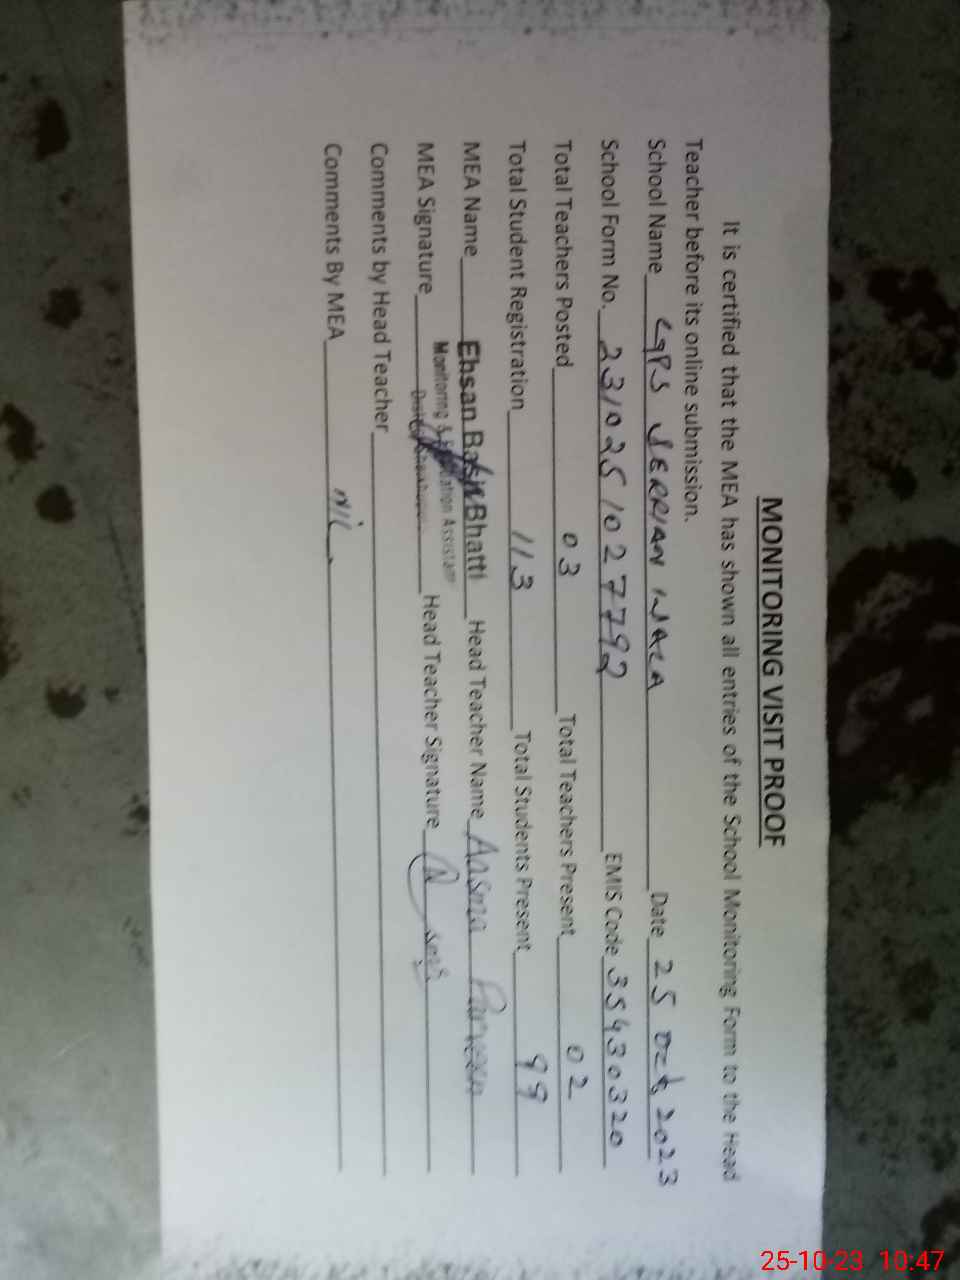 MONITORING VISIT PROOF
It is certified that the MEA has shown all entries of the School Monitoring Form to the Head
Teacher before its online submission.
School Name GPS JERRIAN WALA Date 25 Oct, 2023
School Form No. 231025 1027792 EMIS Code 35430320
Total Teachers Posted 03 Total Teachers Present 02
Total Student Registration 113 Total Students Present 99
MEA Name Ehsan Basir Bhatti Head Teacher Name Aasma Parveen
Monitoring & Assistant
MEA Signature Head Teacher Signature
Comments by Head Teacher
Comments By MEA Nil
25-10-23 10:47